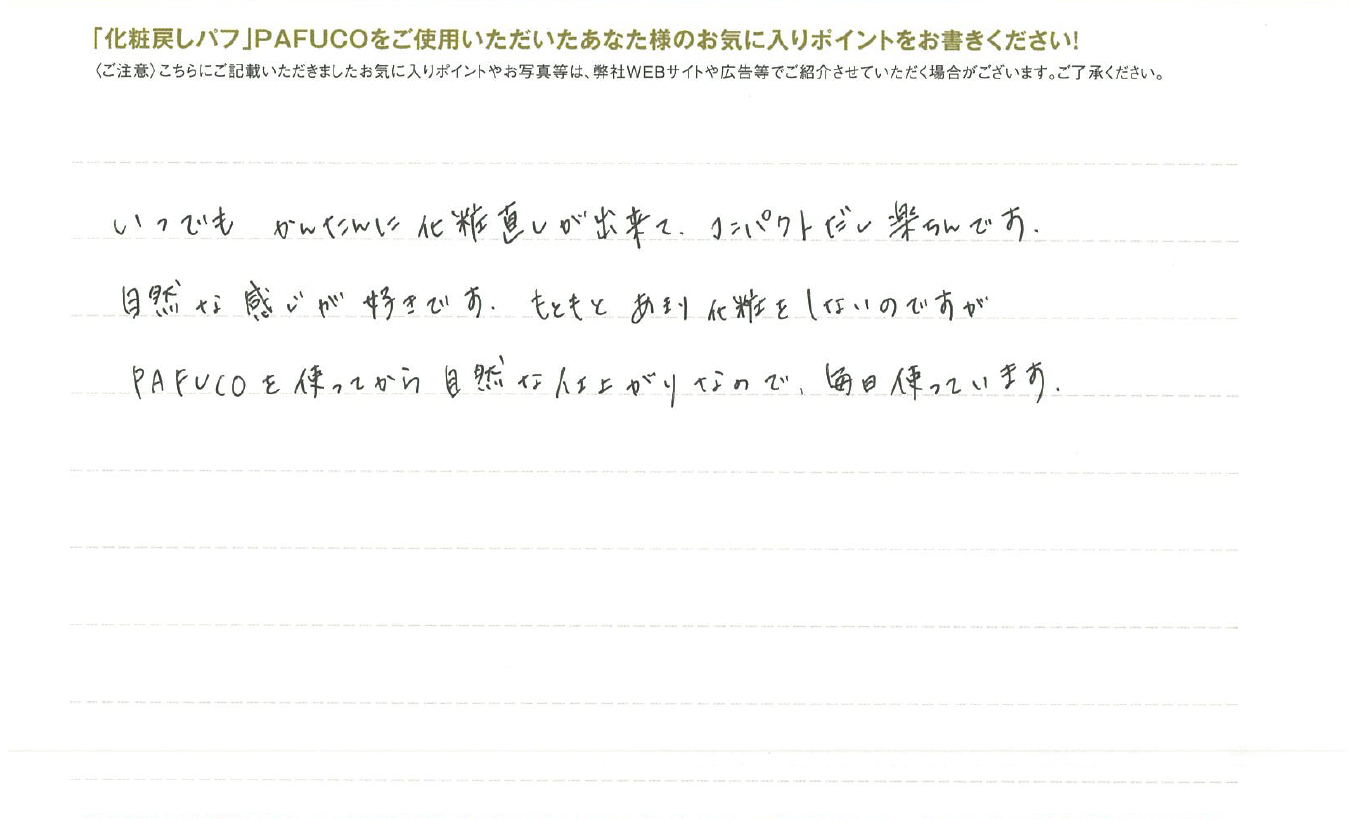 「化粧戻しパフ」PAFUCOをご使用いただいたあなた様のお気に入りポイントをお書きください!
〈ご注意〉こちらにご記載いただきましたお気に入りポイントやお写真等は、弊社WEBサイトや広告等でご紹介させていただく場合がございます。ご了承ください。
いつでも かんたんに化粧直しが出来て、コンパクトだし楽ちんです。
自然な感じが好きです。もともとあまり化粧をしないのですが
PAFUCOを使ってから自然な仕上がりなので、毎日使っています。